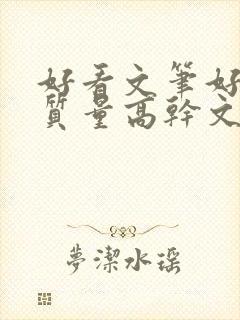 好看文筆好
質量高幹文
夢潔水瑶